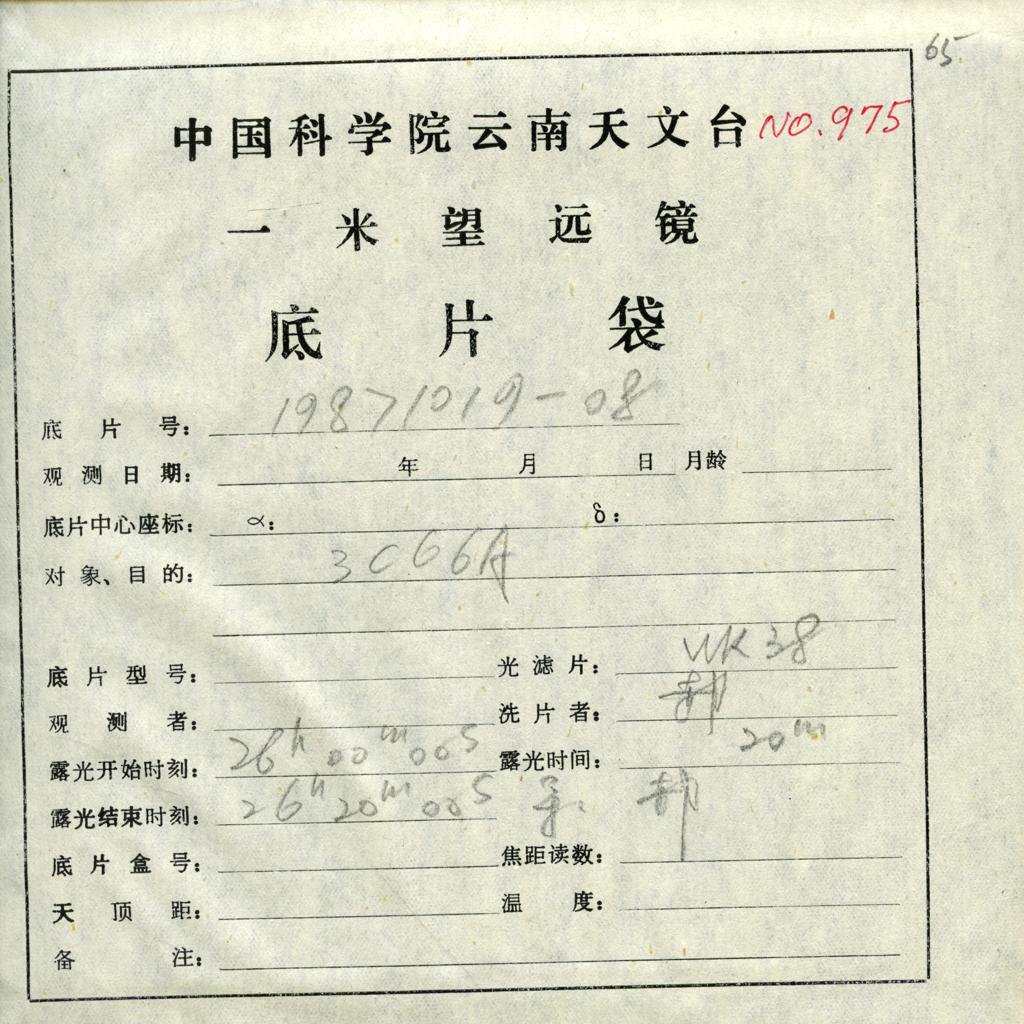 65
中国科学院云南天文台 NO.975
一米望远镜
底片袋
底片号: 19871019-08
观测日期: 年 月 日 月龄
底片中心座标: α: δ:
对象、目的: 3C66A
底片型号: 光滤片: WK38
观测者: 洗片者: 郝
露光开始时刻: 26h00m00s 露光时间: 20m
露光结束时刻: 26h20m00s 郝
底片盒号: 焦距读数:
天顶距: 温度:
备注: